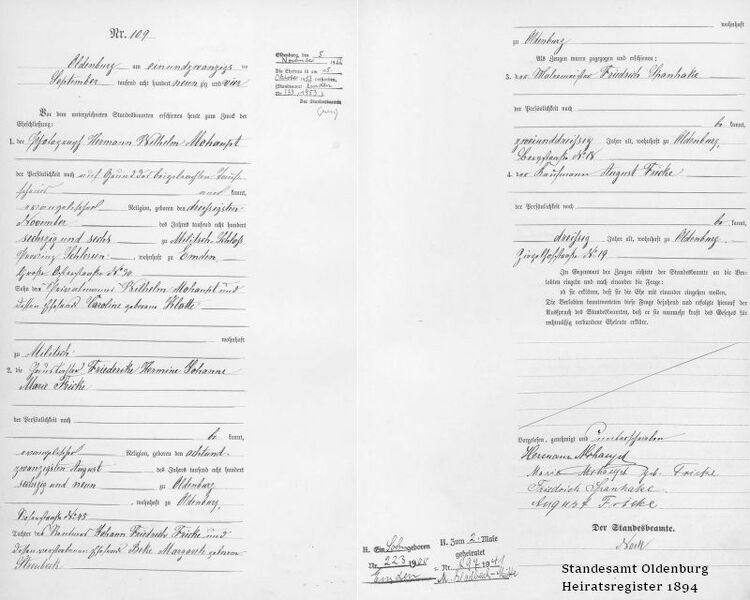 Nr. 109
Oldenburg am einundzwanzigsten
September tausend acht hundert neunzig und vier
Vor dem unterzeichneten Standesbeamten erschienen heute zum Zweck der
Eheschließung:
1. der Photograph Hermann Wilhelm Mohaupt
der Persönlichkeit nach auf Grund des beigebrachten Tauf-
scheines kannt,
evangelischer Religion, geboren den dreissigsten
November des Jahres tausend acht hundert
sechszig und sechs zu Militsch-Schloß
Provinz Schlesien, wohnhaft zu Emden
Große Osterstraße No 30
Sohn des Privatmanns Wilhelm Mohaupt und
dessen Ehefrau Caroline geborene Klatte
wohnhaft
zu Militsch
2. die Haustochter Friederike Hermine Johanne
Marie Fricke
der Persönlichkeit nach
be kannt,
evangelischer Religion, geboren den achtund-
zwanzigsten August des Jahres tausend acht hundert
sechszig und neun zu Oldenburg
, wohnhaft zu Oldenburg,
No 45
Tochter des Johann Friedrich Fricke und
dessen verstorbenen Ehefrau Beke Margarete geborene
Steinbeck
Oldenburg, den 5.
November 19
Die Ehefrau ist am 15.
Oktober 1953 verstorben.
(Standesamt Emden
Nr. 1953)
Der Standesbeamte
wohnhaft
zu Oldenburg
Als Zeugen waren zugezogen und erschienen:
3. der Malermeister Friedrich Spanhake
der Persönlichkeit nach
be kannt,
zweiunddreissig Jahre alt, wohnhaft zu Oldenburg,
Bergstraße No 18
4. der Kaufmann August Fricke
der Persönlichkeit nach
be kannt,
dreissig Jahre alt, wohnhaft zu Oldenburg
Ziegelhofstraße No 19
In Gegenwart der Zeugen richtete der Standesbeamte an die Ver-
lobten einzeln und nach einander die Frage:
ob sie erklären, daß sie die Ehe mit einander eingehen wollen.
Die Verlobten beantworteten diese Frage bejahend und erfolgte hierauf der
Ausspruch des Standesbeamten, daß er sie nunmehr kraft des Gesetzes für
rechtmäßig verbundene Eheleute erkläre.
Vorgelesen, genehmigt und unterschrieben
Hermann Mohaupt
Marie Mohaupt geb. Fricke
Friedrich Spanhake
August Fricke
Der Standesbeamte.
H. Ein Sohn geboren
Nr. 223 1908
Emden
H. Zum 2. Male
geheiratet
Nr. 1941
M. Gladbach-Mitte
Standesamt Oldenburg
Heiratsregister 1894